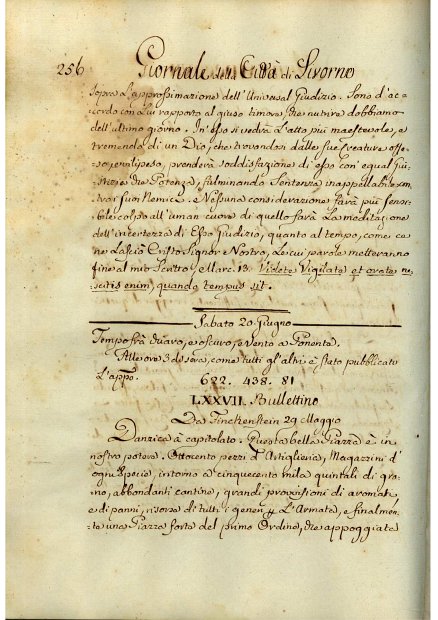 256 Giornale della Città di Livorno
sopra l'approssimazione dell'Universal Giudizio. Sono d'ac=
cordo con Lui rapporto al giusto timore, che nutrire dobbiamo
dell'ultimo giorno. In esso si vedrà l'atto più maestevole, e
tremendo di un Dio, che trovandosi dalle sue Creature offe=
so, e vilipeso, prenderà soddisfazione di esso con egual Giu=
stizia che Potenza, fulminando Sentenza inappellabile con=
tro i suoi Nemici. Nessuna considerazione farà più sensi=
bile colpo all'uman cuore di quello farà la meditazione
dell'incertezza di Esso Giudizio, quanto al tempo, come ce
ne lasciò Cristo Signor Nostro, le cui parole metteranno
fine al mio Scritto. Marc. 13. Videte Vigilate et orate ne=
scitis enim, quando tempus sit.
Sabato 20. Giugno
Tempo frà chiaro, e oscuro, e vento a Ponente.
Alle ore 3 di sera, come tutti gl'altri è stato pubblicato
l'appo.
622. 438. 81
LXXVII. Bullettino
Da Finckenstein 29 Maggio
Danzica à capitolato. Questa bella Piazza è in
nostro potere. Ottocento pezzi d'Artiglieria, Magazzini d'
ogni Specie, intorno a cinquecento mila quintali di gra=
no, abbondanti cantine, grandi provvisioni di aromati,
e di panni, risorse di tutti i generi p. l'Armata, e finalmen=
te una Piazza forte del primo Ordine, che appoggiata